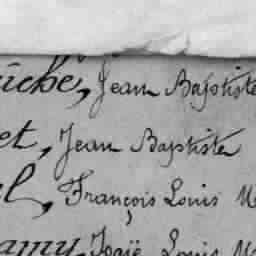 uiché, Jean Baptiste
et, Jean Baptiste
el, François Louis
amy, Isaïe Louis